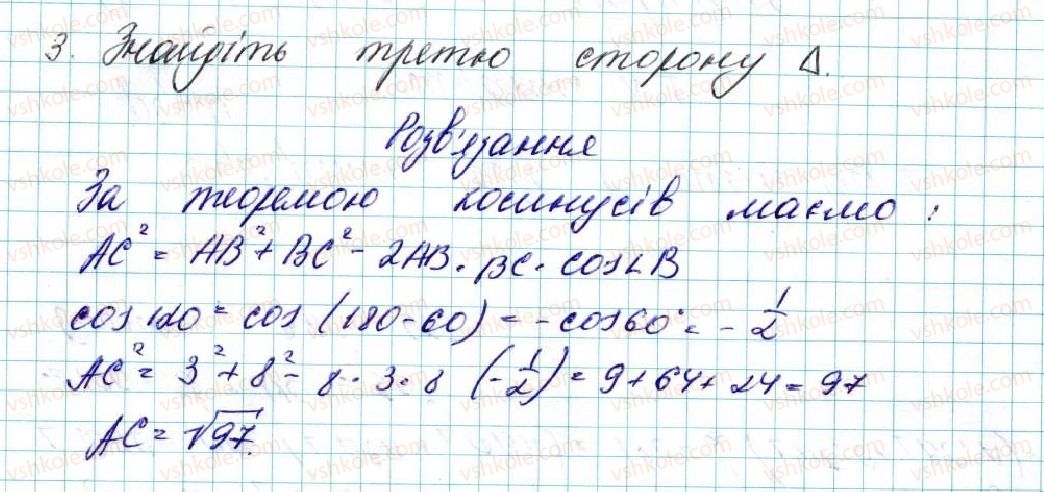 3. Знайдіть третю сторону Δ.
Розв'язання
За теоремою косинусів маємо:
AC² = AB² + BC² - 2AB · BC · cos∠B
cos 120 = cos (180 - 60) = - cos 60° = - 1/2
AC² = 3² + 8² - 8 · 3 · 8 (-1/2) = 9 + 64 + 24 = 97
AC = √97.